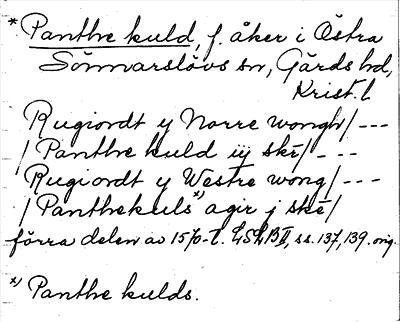 * Panthe kuld, f. åker i Östra
Sönnarslövs sn, Gärds hd,
Krist. l
Rugiordt y Norre wongh/ ---
/ Panthe kuld iij skē/ ---
Rugiordt y Westre wong/ ---
/ Panthekuls *) agir j skē/
förra delen av 15/0-t. LSLB II, ss. 137, 139. orig.
*) Panthe kulds.